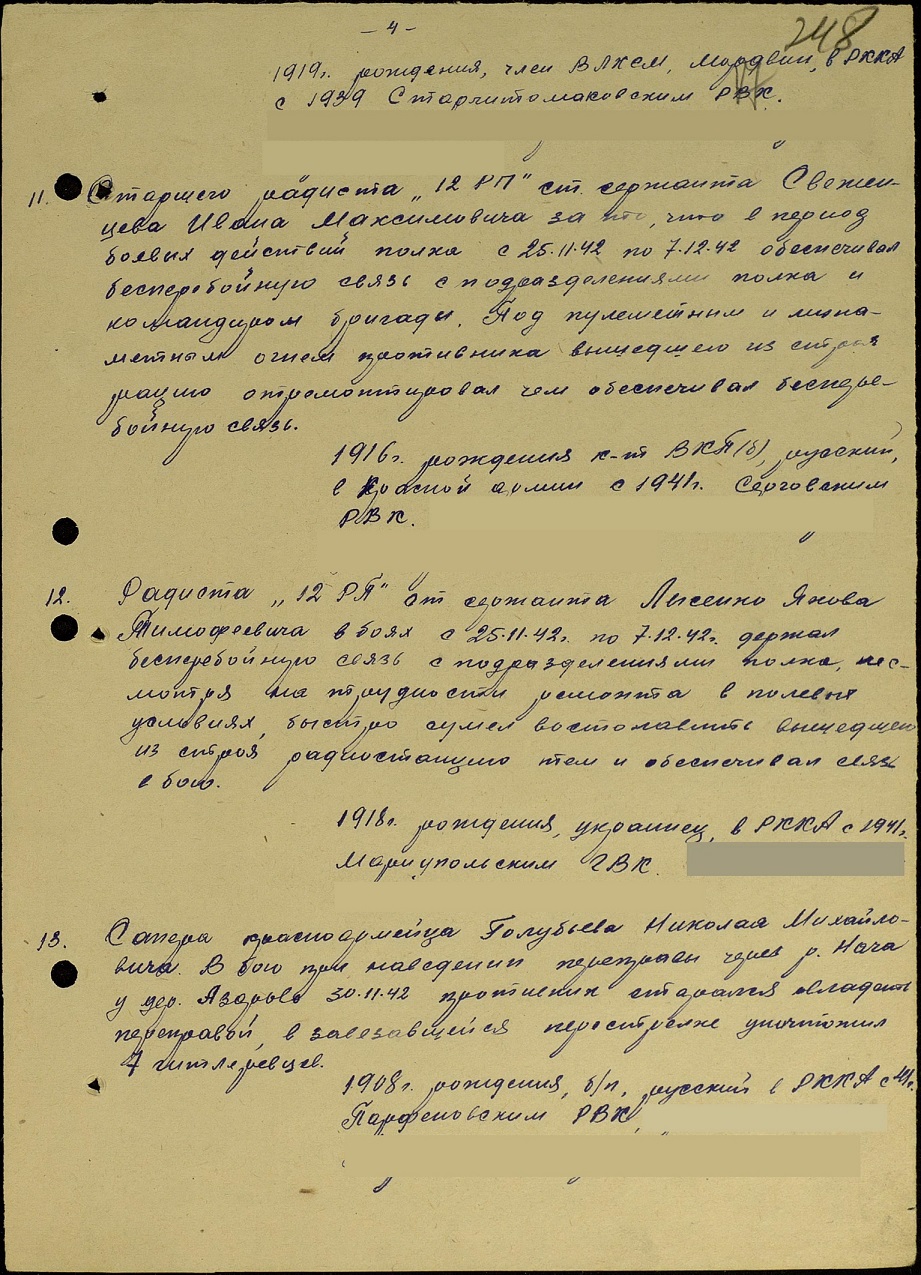 - 4 -
248
1919г. рождения, член ВЛКСМ, Мордвин, в РККА
с 1939 РВК.
11. Старшего радиста "12 РП" ст. сержанта Свежен-
цева Ивана Максимовича за то, что в период
боевых действий полка с 25.11.42 по 7.12.42 обеспечивал
бесперебойную связь с подразделениями полка и
командиром бригады. Под пулеметным и мино-
метным огнем противника вышедшею из строя
рацию отремонтировал чем обеспечивал беспере-
бойную связь.
1916г. рождения к-т ВКП(б), русский,
в Красной армии с 1941г. Серговским
РВК.
12. Радиста "12 РП" ст сержанта Лысенко Якова
Тимофеевича в боях с 25.11.42г. по 7.12.42г. держал
бесперебойную связь с подразделениями полка, нес-
мотря на трудности ремонта в полевых
условиях, быстро сумел востонавить вышедшею
из строя радиостанцию тем и обеспечивал связь
в бою.
1918г. рождения, украинец, в РККА с 1941г.
Мариупольским ГВК.
13. Сапера красноармейца Голубьева Николая Михайло-
вича. В бою при наведении переправы через р. Нача
у дер. Аздрово 30.11.42 противник старался овладеть
переправой, в завезавшейся перестрелке уничтожил
7 гитлеровцев.
1908г. рождения, б/п, русский в РККА с 41г.
Парфеновским РВК,